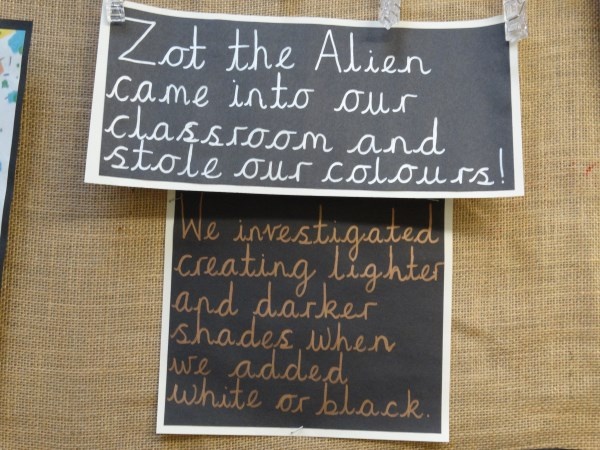 Zot the Alien
came into our
classroom and
stole our colours!
We investigated
creating lighter
and darker
shades when
we added
white or black.